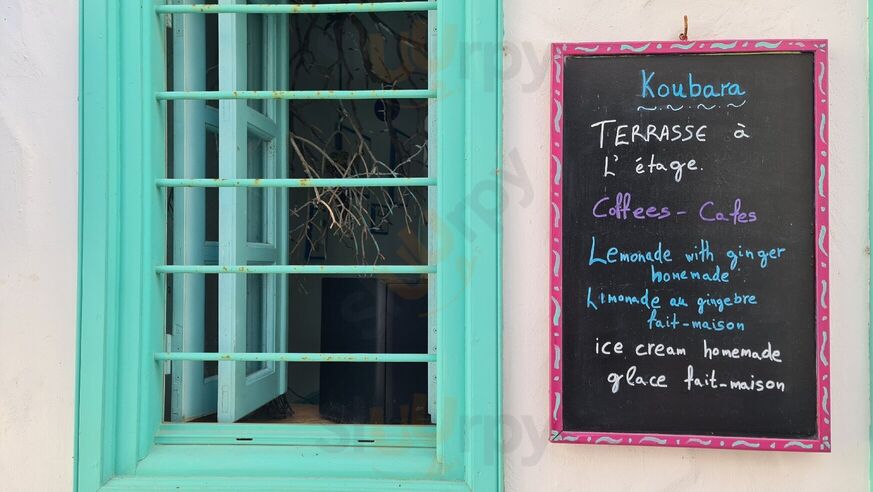 Koubara
TERRASSE à
L'étage.
Coffees - Cafes
Lemonade with ginger
homemade
Limonade au gingebre
fait-maison
ice cream homemade
glace fait-maison